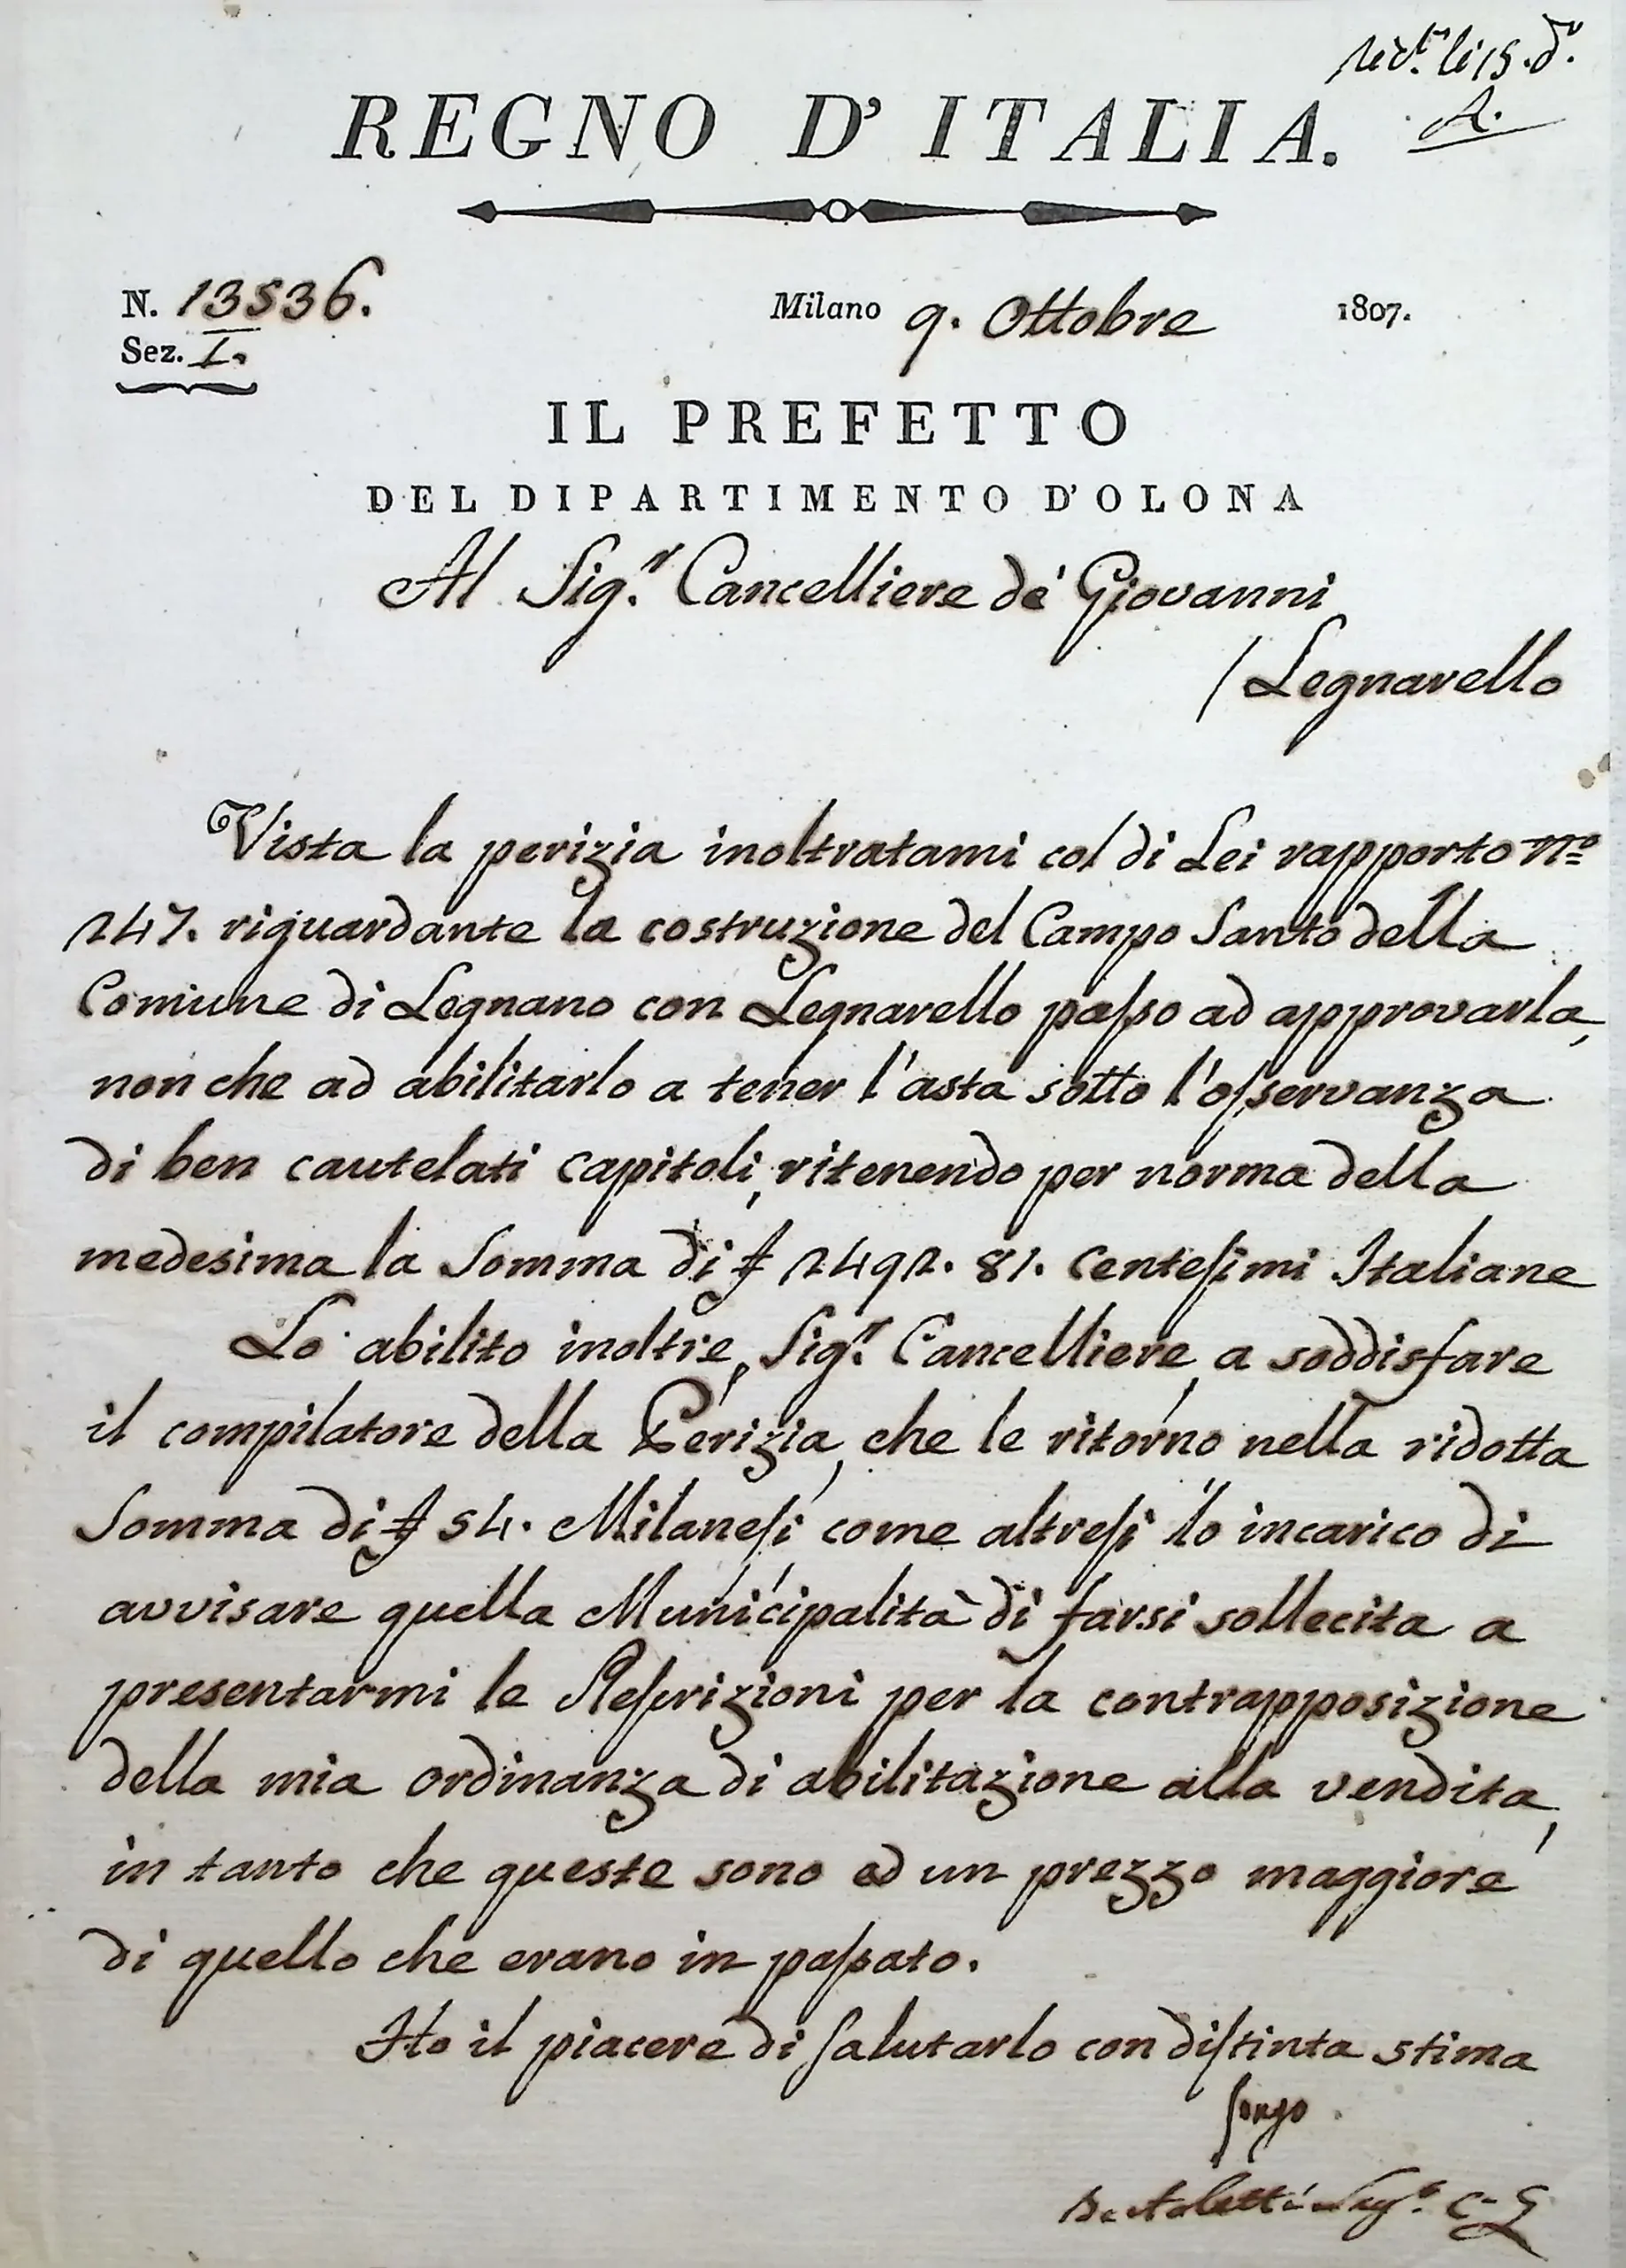 ricev.ta li 15. d.o
A.
REGNO D' ITALIA.
N. 13536.
Milano 9. Ottobre 1807.
Sez. I.
IL PREFETTO
DEL DIPARTIMENTO D'OLONA
Al Sig.r Cancelliere de' Giovanni
/ Legnarello
Vista la perizia inoltratami col di Lei rapporto N.o
247. riguardante la costruzione del Campo Santo della
Comune di Legnano con Legnarello passo ad approvarla,
non che ad abilitarlo a tener l'asta sotto l'osservanza
di ben cautelati capitoli, ritenendo per norma della
medesima la Somma di £ 2492. 81. Centesimi Italiane
Lo abilito inoltre, Sig.r Cancelliere, a soddisfare
il compilatore della Perizia, che le ritorno nella ridotta
Somma di £ 54. Milanesi come altresì lo incarico di
avvisare quella Municipalità di farsi sollecita a
presentarmi le Rescrizioni per la contrapposizione
della mia ordinanza di abilitazione alla vendita,
in tanto che queste sono ad un prezzo maggiore
di quello che erano in passato.
Ho il piacere di salutarlo con distinta stima